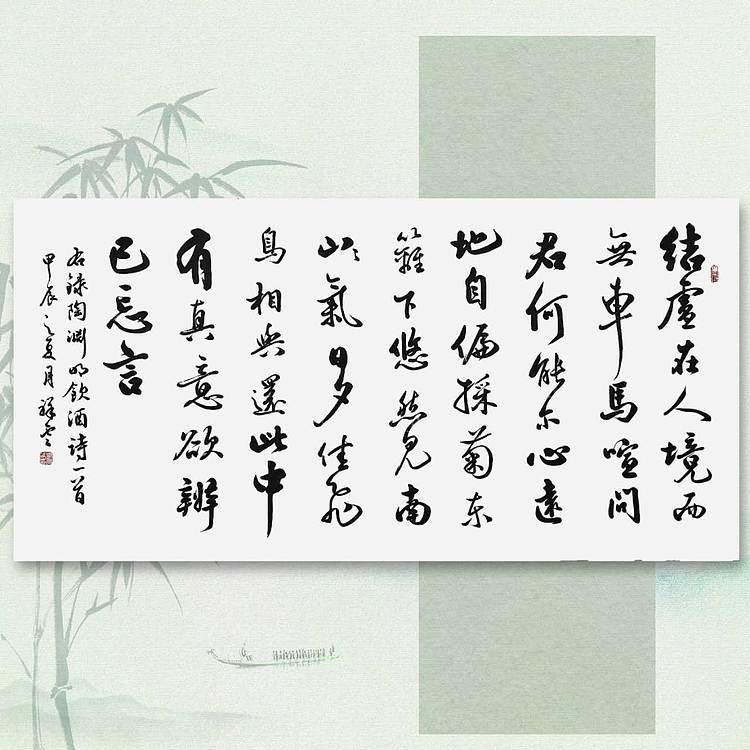 結廬在人境而
無車馬喧問
君何能尔心遠
地自偏採菊东
籬下悠然見南
山氣日夕佳飛
鳥相與還此中
有真意欲辨
已忘言
右録陶渊明飲酒诗一首
甲辰之夏月祥